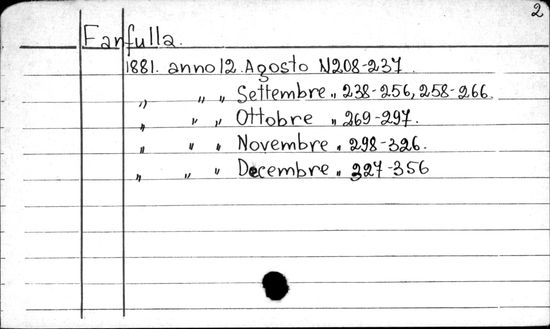 2
Fanfulla.
1881. anno 12. Agosto N208-237
" " " Settembre " 238-256, 258-266.
" " " Ottobre " 269-297.
" " " Novembre " 298-326.
" " " Decembre " 327-356